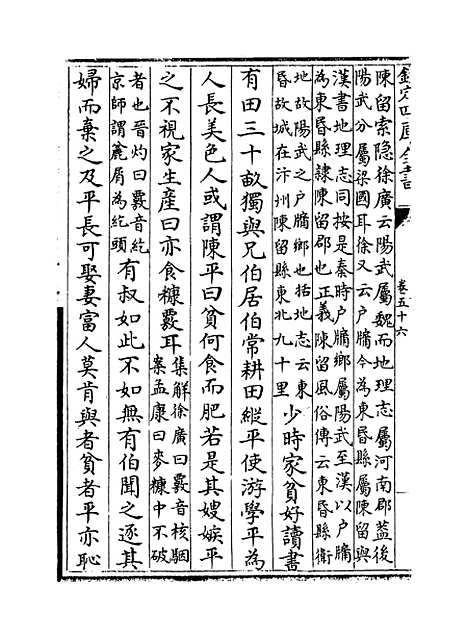 欽定四庫全書
卷五十六
陳留索隐徐廣云陽武屬魏而地理志屬河南郡蓋後
陽武分屬梁國耳徐又云户牖今為東昏縣屬陳留與
漢書地理志同按是秦時户牖鄉屬陽武至漢以户牖
為東昏縣隸陳留郡也正義陳留風俗傳云東昏縣衛
地故陽武之户牖鄉也括地志云東
昏故城在汴州陳留縣東北九十里
少時家貧好讀書
有田三十畝獨與兄伯居伯常耕田縱平使游學平為
人長美色人或謂陳平曰貧何食而肥若是其嫂嫉平
之不視家生產曰亦食糠覈耳
集解徐廣曰覈音核駰
案孟康曰麥糠中不破
者也晉灼曰覈音紇
京師謂麄屑為紇頭
有叔如此不如無有伯聞之逐其
婦而棄之及平長可娶妻富人莫肯與者貧者平亦恥